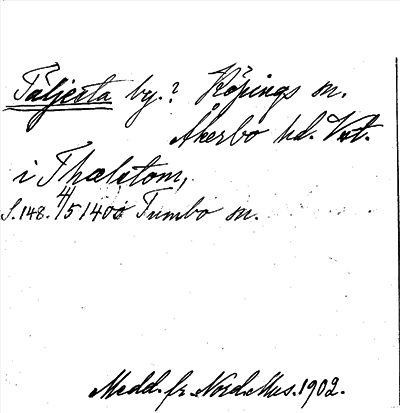 Täljesta by.? Köpings sn.
Åkerbo hd. Vstm.
i Thælstom,
S. 148. 4/5 1400 Tumbo sn.
Medd. fr. Nord. Mus. 1902.